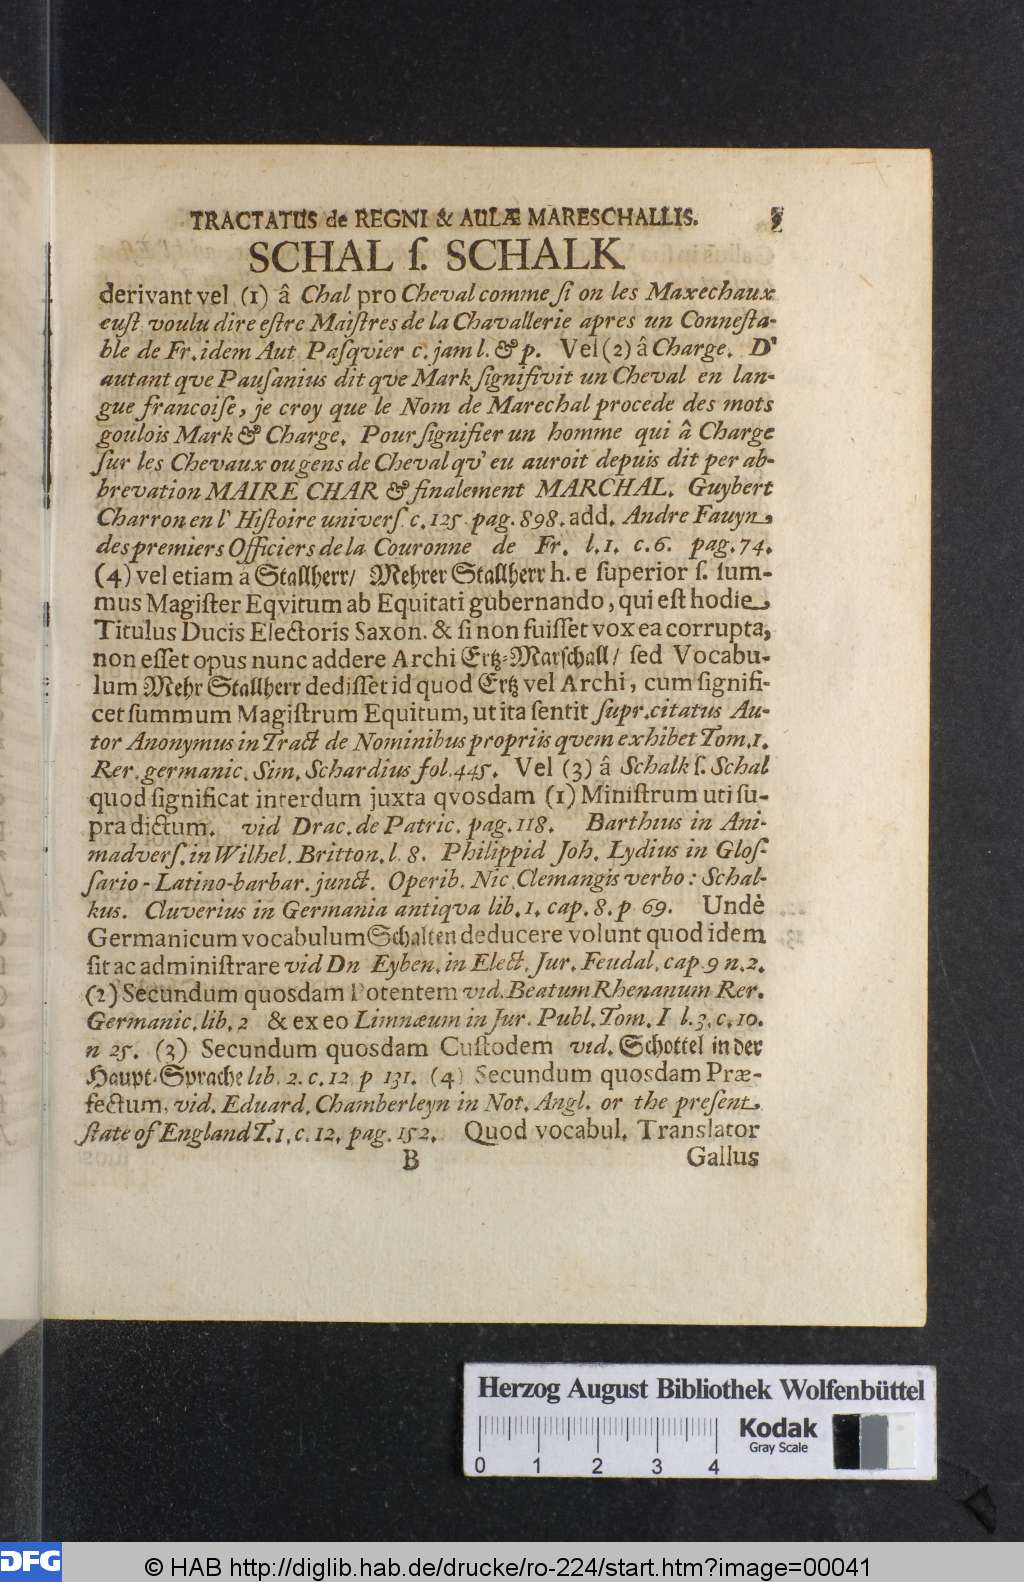 TRACTATUS de REGNI & AULÆ MARESCHALLIS.
SCHAL ſ. SCHALK
derivant vel (1) â Chal pro Cheval comme ſi on les Maxechaux
euſt voulu dire eſtre Maiſtres de la Chavallerie apres un Conneſta-
ble de Fr. idem Aut Paſqvier c. jam l. & p. Vel (2) â Charge. D'
autant qve Pauſanius dit qve Mark ſignifivit un Cheval en lan-
gue francoiſe, je croy que le Nom de Marechal procede des mots
goulois Mark & Charge. Pour ſignifier un homme qui â Charge
ſur les Chevaux ou gens de Cheval qv' eu auroit depuis dit per ab-
brevation MAIRE CHAR & finalement MARCHAL. Guybert
Charron en l' Hiſtoire univerſ. c. 125. pag. 898. add. Andre Fauyn,
des premiers Officiers de la Couronne de Fr. l. 1. c. 6. pag. 74.
(4) vel etiam a Stallherr/ Mehrer Stallherr h. e ſuperior ſ. ſum-
mus Magiſter Eqvitum ab Equitati gubernando, qui eſt hodie
Titulus Ducis Electoris Saxon. & ſi non fuiſſet vox ea corrupta,
non eſſet opus nunc addere Archi Ertz-Marſchall/ ſed Vocabu-
lum Mehr Stallherr dediſſet id quod Ertz vel Archi, cum ſignifi-
cet ſummum Magiſtrum Equitum, ut ita ſentit ſupr. citatus Au-
tor Anonymus in Tract de Nominibus propriis qvem exhibet Tom. 1.
Rer. germanic. Sim. Schardius fol. 445. Vel (3) â Schalk ſ. Schal
quod ſignificat interdum juxta qvosdam (1) Miniſtrum uti ſu-
pra dictum. vid Drac. de Patric. pag. 118. Barthius in Ani-
madverſ. in Wilhel. Britton. l. 8. Philippid Joh. Lydius in Gloſ-
ſario - Latino-barbar. junct. Operib. Nic. Clemangis verbo: Schal-
kus. Cluverius in Germania antiqva lib. 1. cap. 8. p 69. Undè
Germanicum vocabulum Schalten deducere volunt quod idem
ſit ac adminiſtrare vid Dn Eyben. in Elect. Jur. Feudal. cap. 9 n. 2.
(2) Secundum quosdam Potentem vid. Beatum Rhenanum Rer.
Germanic. lib. 2 & ex eo Limnæum in Jur. Publ. Tom. I l. 3. c. 10.
n 25. (3) Secundum quosdam Cuſtodem vid. Schottel in der
Haupt-Sprache lib. 2. c. 12 p 131. (4) Secundum quosdam Præ-
fectum, vid. Eduard. Chamberleyn in Not. Angl. or the preſent
ſtate of England T. 1. c. 12. pag. 152. Quod vocabul. Translator
B Gallus
Herzog August Bibliothek Wolfenbüttel
Kodak
Gray Scale
0 1 2 3 4
DFG © HAB http://diglib.hab.de/drucke/ro-224/start.htm?image=00041